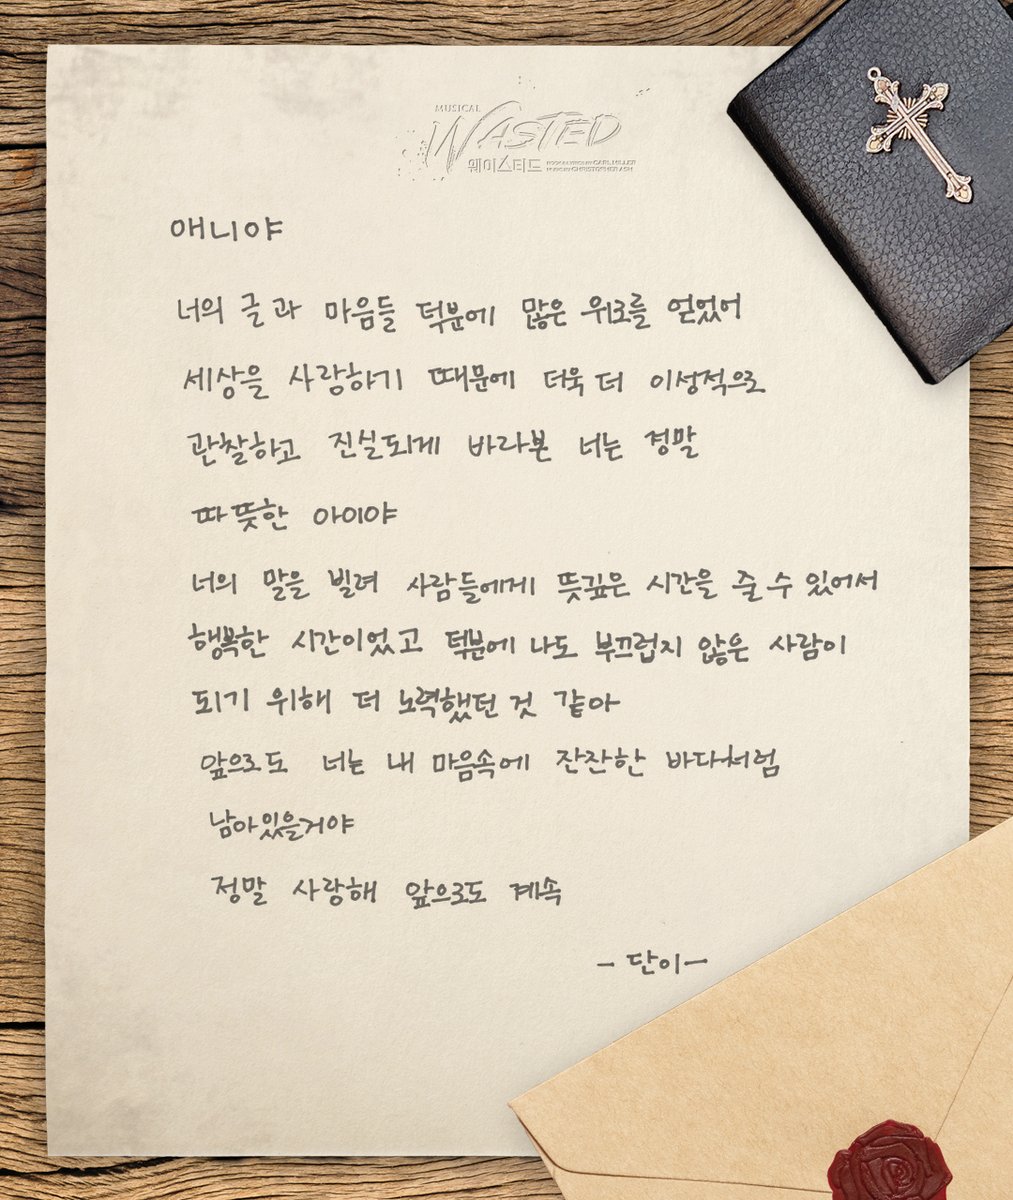 MUSICAL
WASTED
웨이스티드
BOOK & LYRICS BY CARL MILLER
MUSIC BY CHRISTOPHER ASH
애니야
너의 글과 마음들 덕분에 많은 위로를 얻었어
세상을 사람하기 때문에 더욱 더 이성적으로
관찰하고 진실되게 바라본 너는 정말
따뜻한 아이야
너의 말을 빌려 사람들에게 뜻깊은 시간을 줄 수 있어서
행복한 시간이었고 덕분에 나도 부끄럽지 않은 사람이
되기 위해 더 노력했던 것 같아
앞으로도 너는 내 마음속에 잔잔한 바다처럼
남아있을거야
정말 사랑해 앞으로도 계속
- 단이 -